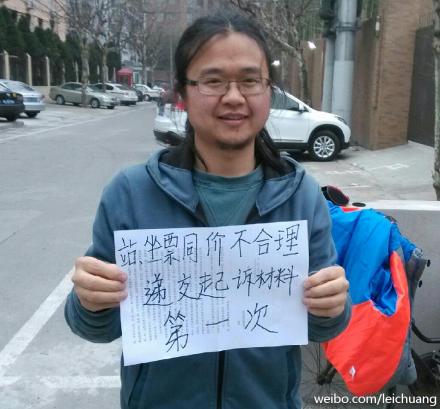 站坐票同价不合理
递交起诉材料
第一次
weibo.com/leichuang